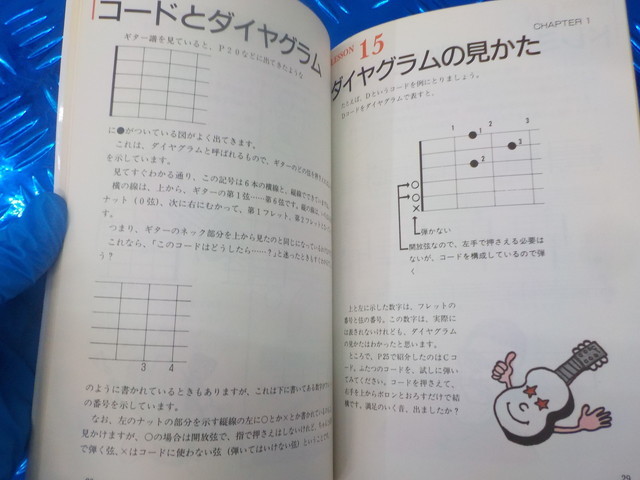 コードとダイヤグラム
ギター譜を見ていると、P20などに出てきたような
に●がついている図がよく出てきます。
これは、ダイヤグラムと呼ばれるもので、ギターのどの弦を押
を示しています。
見てすぐわかる通り、この記号は6本の横線と、縦線でできて
横の線は、上から、ギターの第1弦……第6弦です。縦の線は、
ナット（0弦）、次に右にむかって、第1フレット、第2フレット
す。
つまり、ギターのネック部分を上から見たのと同じになっている
これなら、「このコードはどうしたら……？」と迷ったときも
う？
3 4
のように書かれているときもありますが、これは下に書いてある数字が
の番号を示しています。
なお、左のナットの部分を示す縦線の左に○とか×とか書かれている
見かけますが、○の場合は開放弦で、指で押さえはしないけれど、
で弾く弦、×はコードに使わない弦（弾いてはいけない弦）ということで
CHAPTER 1
LESSON 15
ダイヤグラムの見かた
たとえば、Dというコードを例にとりましょう。
Dコードをダイヤグラムで表すと、
1 2 3
1
3
2
○
○
×
弾かない
開放弦なので、左手で押さえる必要は
ないが、コードを構成しているので弾
く
上と左に示した数字は、フレットの
番号と弦の番号。この数字は、実際に
は表されないけれども、ダイヤグラム
の見かたはわかったと思います。
ところで、P25で紹介したのはCコー
ド。ふたつのコードを、試しに弾い
てみてください。コードを押さえて、
右手を上からポロンとおろすだけで結
構です。満足のいく音、出ましたか？
29